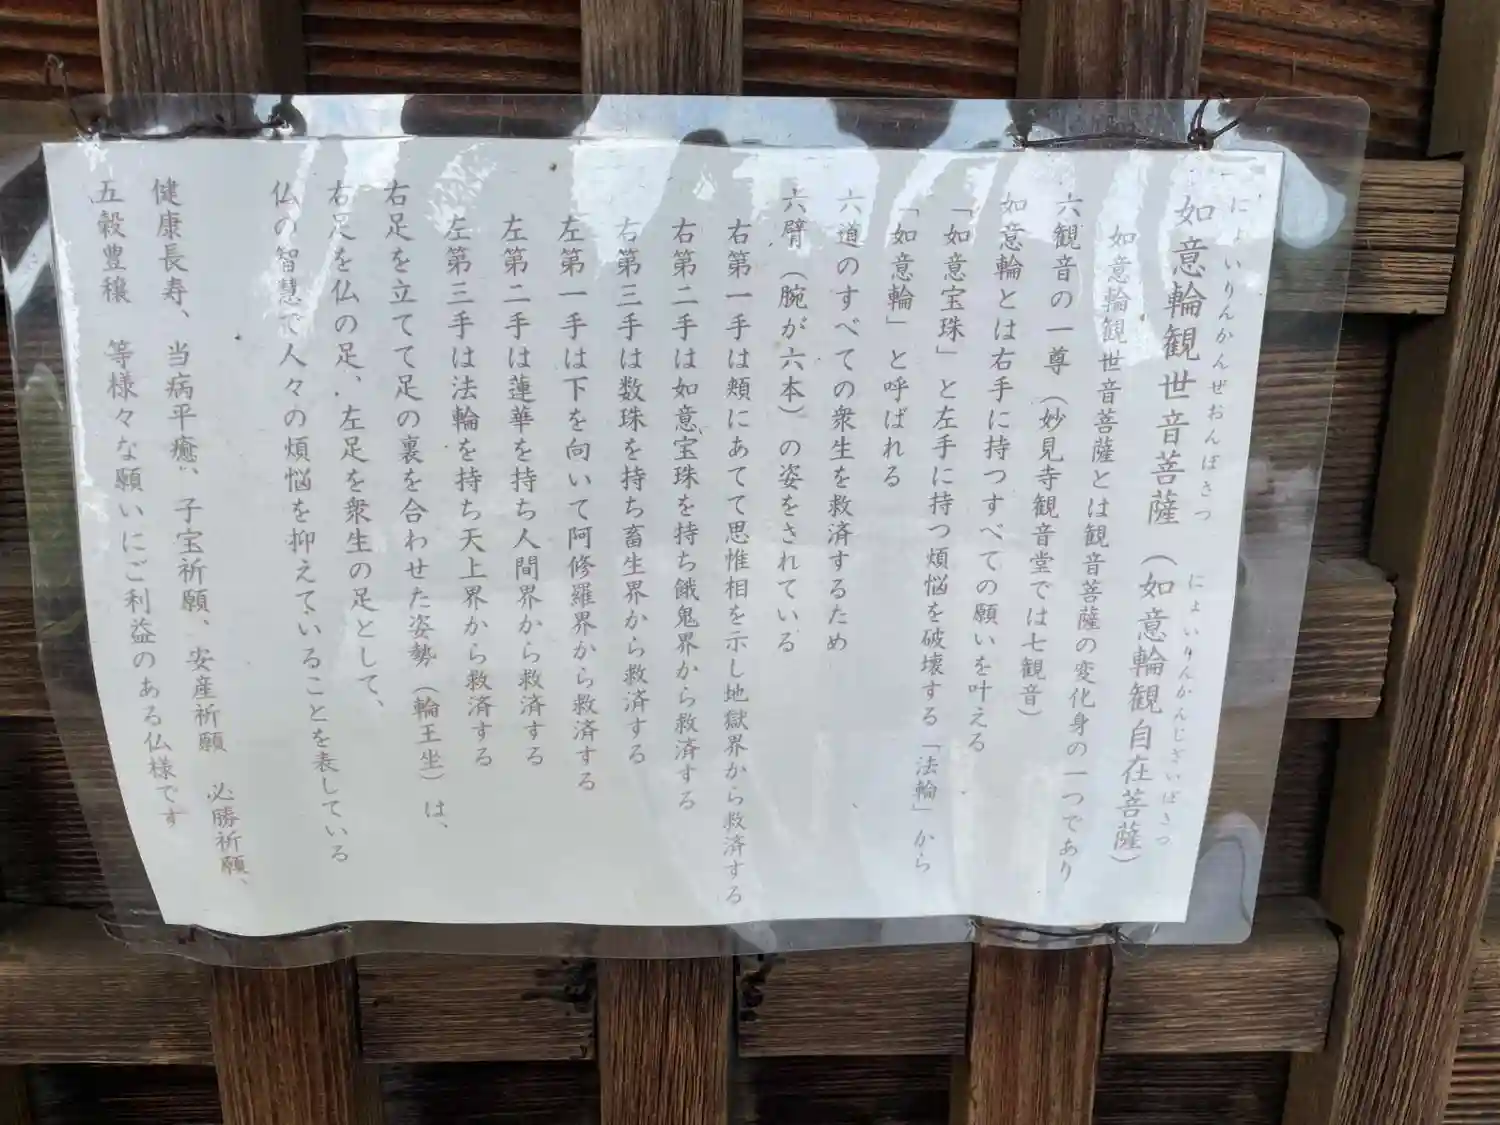 にょいりんかんぜおんぼさつ　にょいりんかんじざいぼさつ
如意輪観世音菩薩（如意輪観自在菩薩）
如意輪観世音菩薩とは観音菩薩の変化身の一つであり
六観音の一尊（妙見寺観音堂では七観音）
如意輪とは右手に持つすべての願いを叶える
「如意宝珠」と左手に持つ煩悩を破壊する「法輪」から
「如意輪」と呼ばれる
六道のすべての衆生を救済するため
六臂（腕が六本）の姿をされている
右第一手は頬にあてて思惟相を示し地獄界から救済する
右第二手は如意宝珠を持ち餓鬼界から救済する
右第三手は数珠を持ち畜生界から救済する
左第一手は下を向いて阿修羅界から救済する
左第二手は蓮華を持ち人間界から救済する
左第三手は法輪を持ち天上界から救済する
右足を立てて足の裏を合わせた姿勢（輪王坐）は、
右足を仏の足、左足を衆生の足として、
仏の智慧で人々の煩悩を抑えていることを表している
健康長寿、当病平癒、子宝祈願、安産祈願　必勝祈願、
五穀豊穣　等様々な願いにご利益のある仏様です